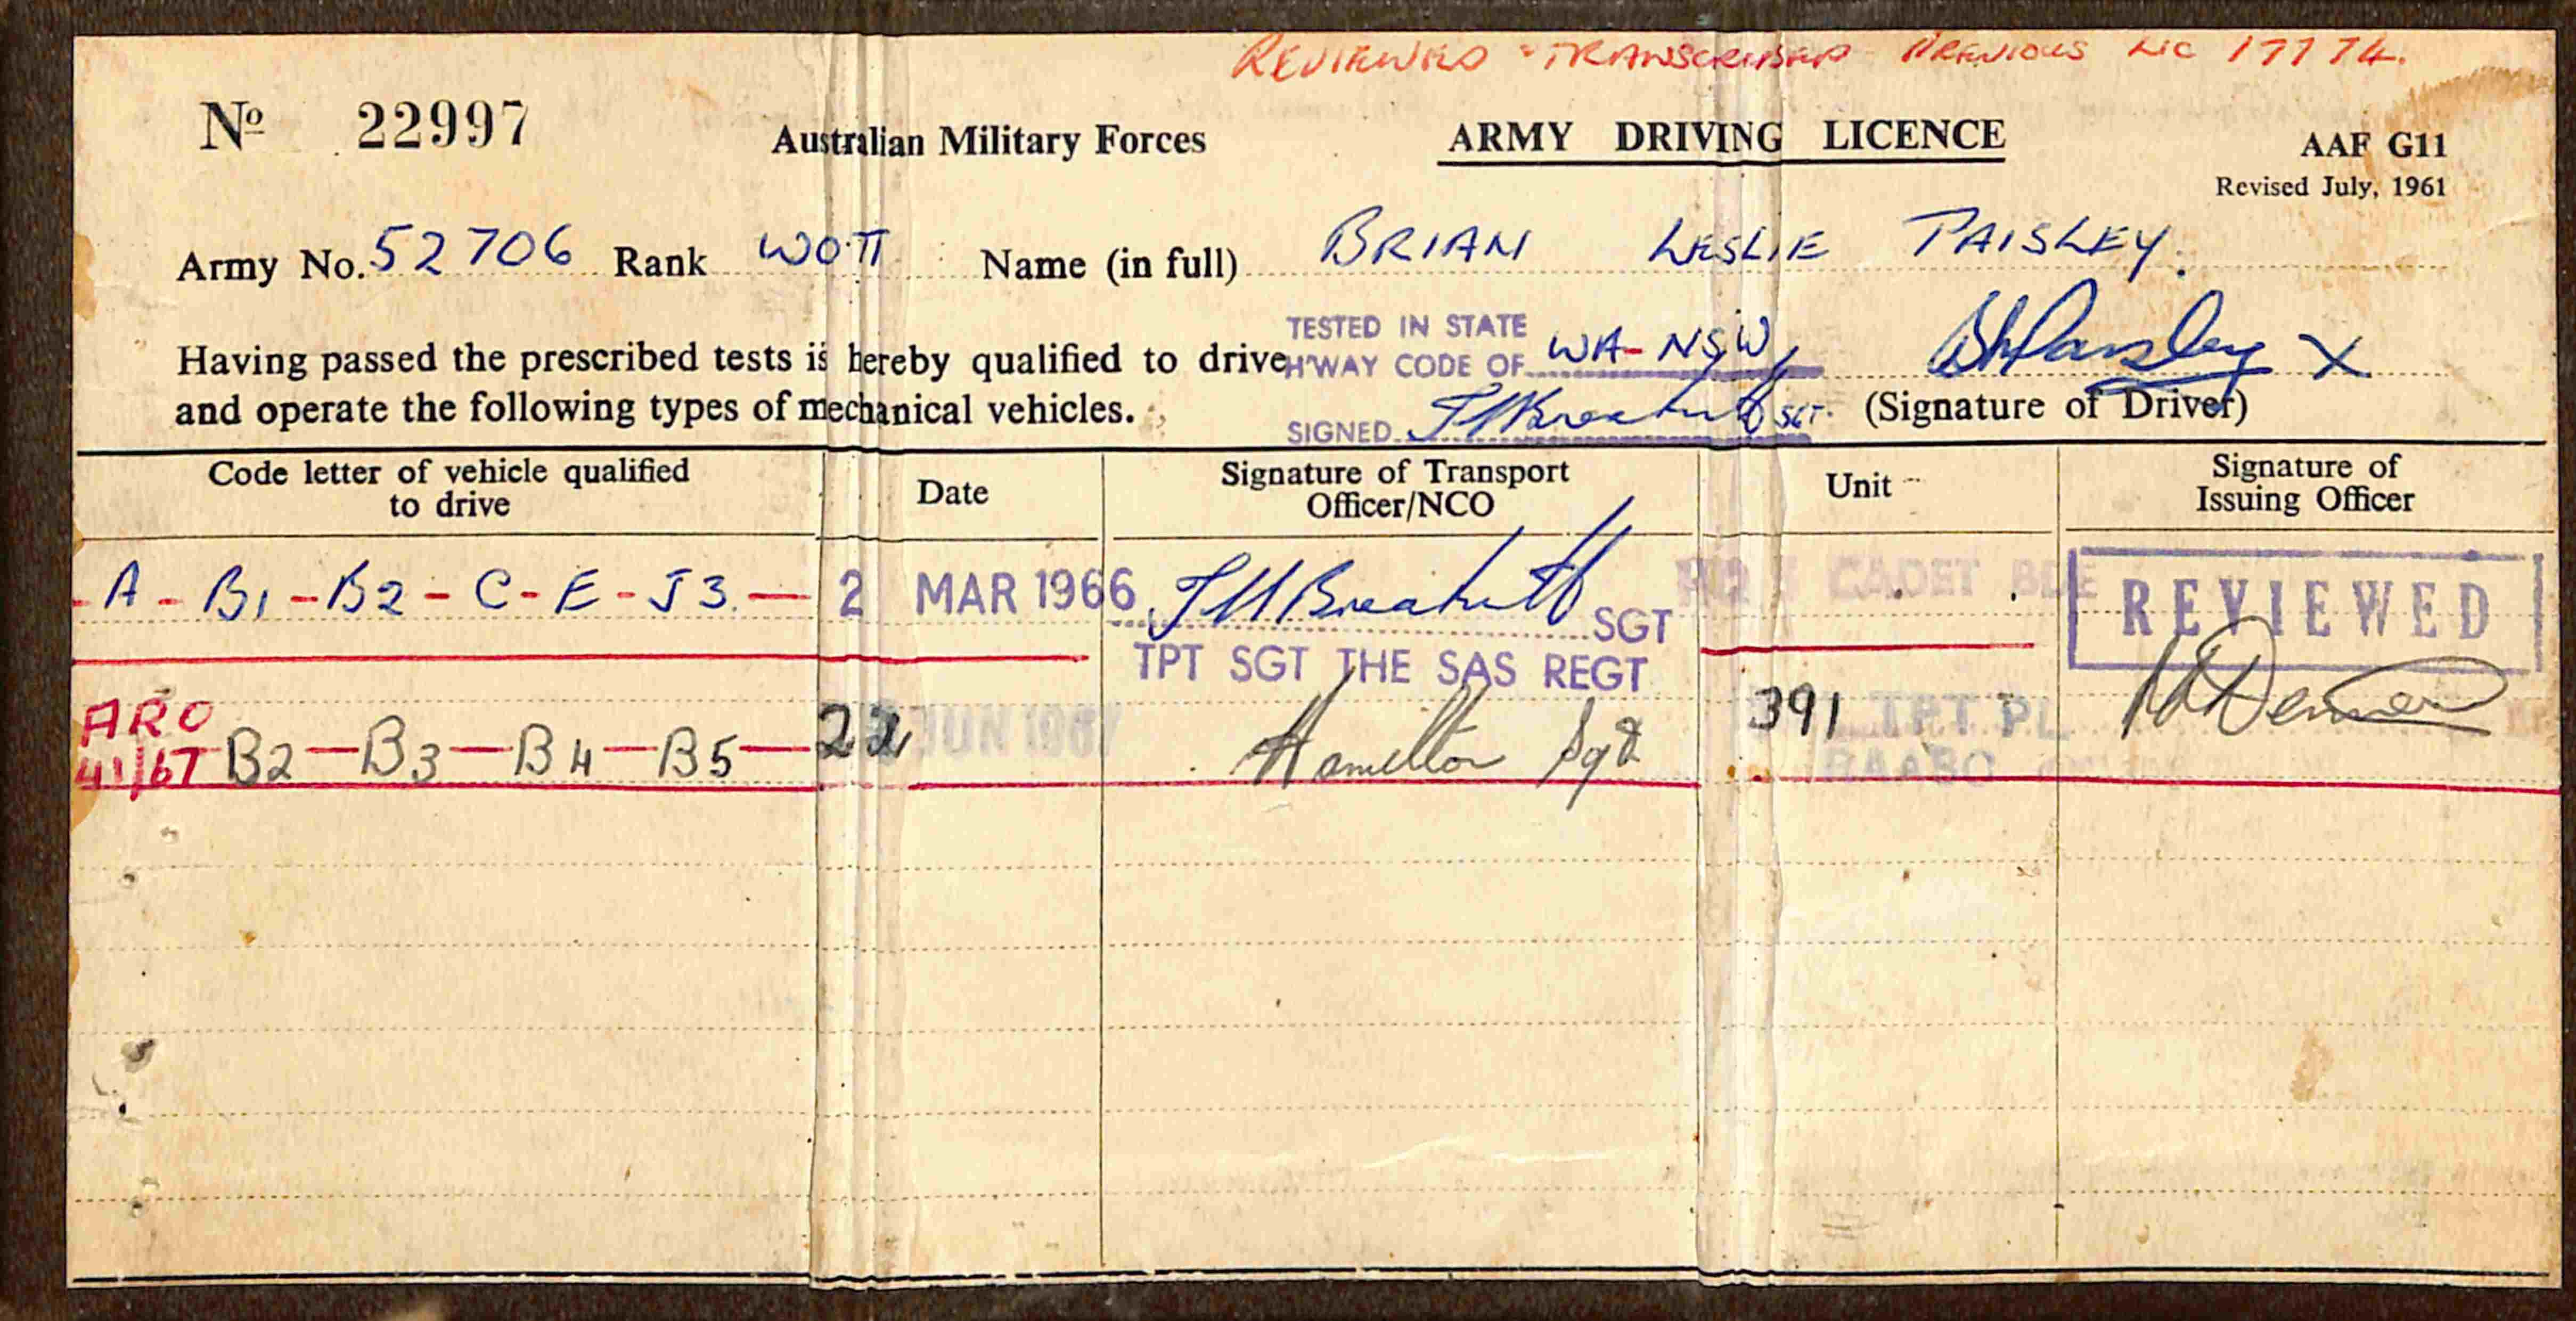 REVIEWED & TRANSCRIBED PREVIOUS LIC 17774.
No 22997 Australian Military Forces ARMY DRIVING LICENCE AAF G11
Revised July, 1961
Army No. 52706 Rank WO II Name (in full) BRIAN LESLIE PAISLEY.
TESTED IN STATE
Having passed the prescribed tests is hereby qualified to drive H'WAY CODE OF WA - NSW BLPaisley X
and operate the following types of mechanical vehicles. SIGNED SGT. (Signature of Driver)
Code letter of vehicle qualified to drive
Date
Signature of Transport Officer/NCO
Unit
Signature of Issuing Officer
- A - B1 - B2 - C - E - J3. — 2 MAR 1966 SGT CADET BDE REVIEWED
TPT SGT THE SAS REGT
ARO 41/67 B2 — B3 — B4 — B5 — 22 JUN 1967 Hamilton Sgt 391 TPT PL
RAASC